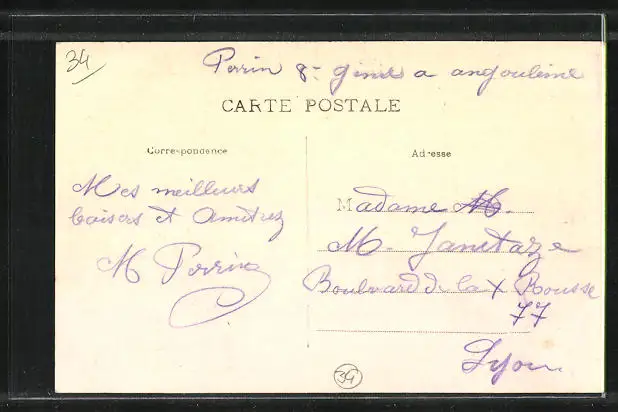 34
Perrin 8e genie a angoulême
CARTE POSTALE
Correspondence
Adresse
Mes meilleurs
baisers et Amitiez
M Perrin
Madame M.
M. Janitaze
Boulvard de la X Rousse
77
Lyon
34